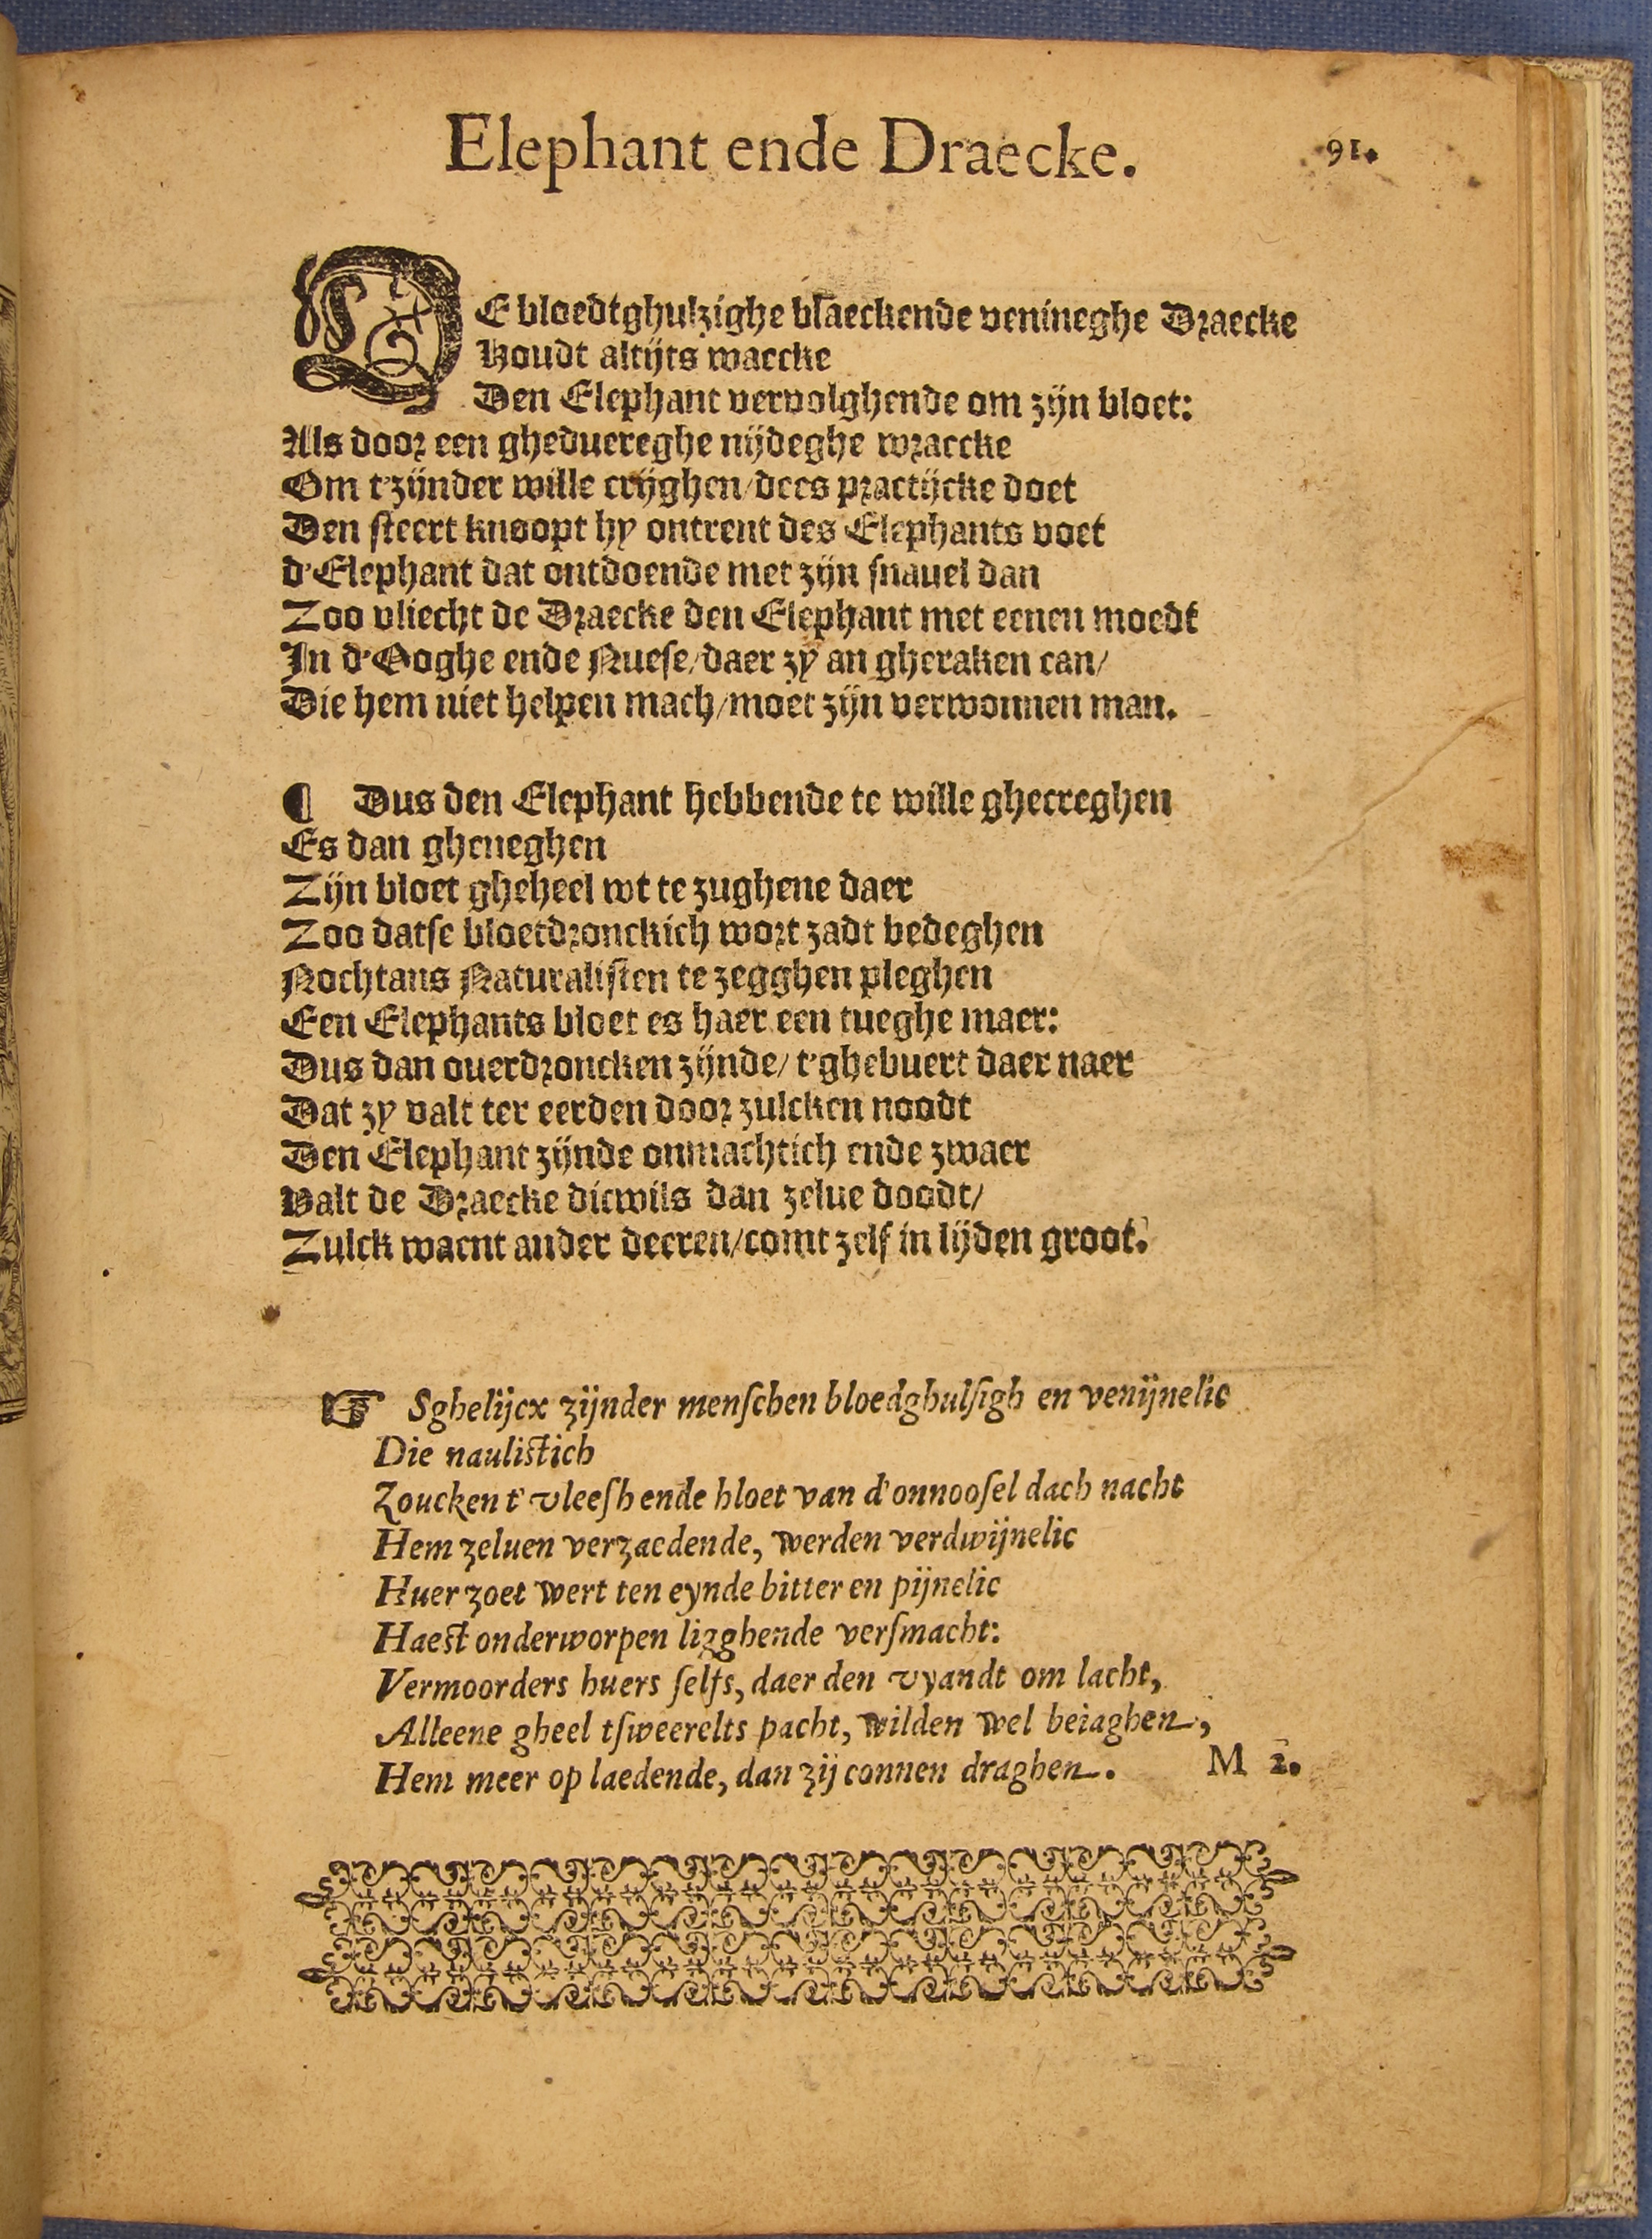 Elephant ende Draecke.
91.
DE bloedtghulzighe blaeckende venineghe Draecke
Houdt altijts waecke
Den Elephant vervolghende om zijn bloet:
Als door een gheduereghe nijdeghe wraecke
Om t'zijnder wille crijghen/dees practijcke doet
Den steert knoopt hy ontrent des Elephants voet
d'Elephant dat ontdoende met zijn snauel dan
Zoo vliecht de Draecke den Elephant met eenen moedt
In d'Ooghe ende Nuese/daer zy an gheraken can/
Die hem niet helpen mach/moet zijn verwonnen man.
¶ Dus den Elephant hebbende te wille ghecreghen
Es dan gheneghen
Zijn bloet gheheel wt te zughene daer
Zoo datse bloetdronckich wort zadt bedeghen
Nochtans Naturalisten te zegghen pleghen
Een Elephants bloet es haer een tueghe maer:
Dus dan ouerdroncken zijnde/ t'ghebuert daer naer
Dat zy valt ter eerden door zulcken noodt
Den Elephant zijnde onmachtich ende zwaer
Valt de Draecke dicwils dan zelue doodt/
Zulck waent ander deeren/comt zelf in lijden groot.
☞ Sghelijcx zijnder menschen bloedghulsigh en venijnelic
Die naulistich
Zoucken t'vleesh ende bloet van d'onnoosel dach nacht
Hem zeluen verzaedende, werden verdwijnelic
Huer zoet wert ten eynde bitter en pijnelic
Haest onderworpen ligghende versmacht:
Vermoorders huers selfs, daer den vyandt om lacht,
Alleene gheel tsweerelts pacht, wilden wel beiaghen,
Hem meer op laedende, dan zij connen draghen.
M 2.